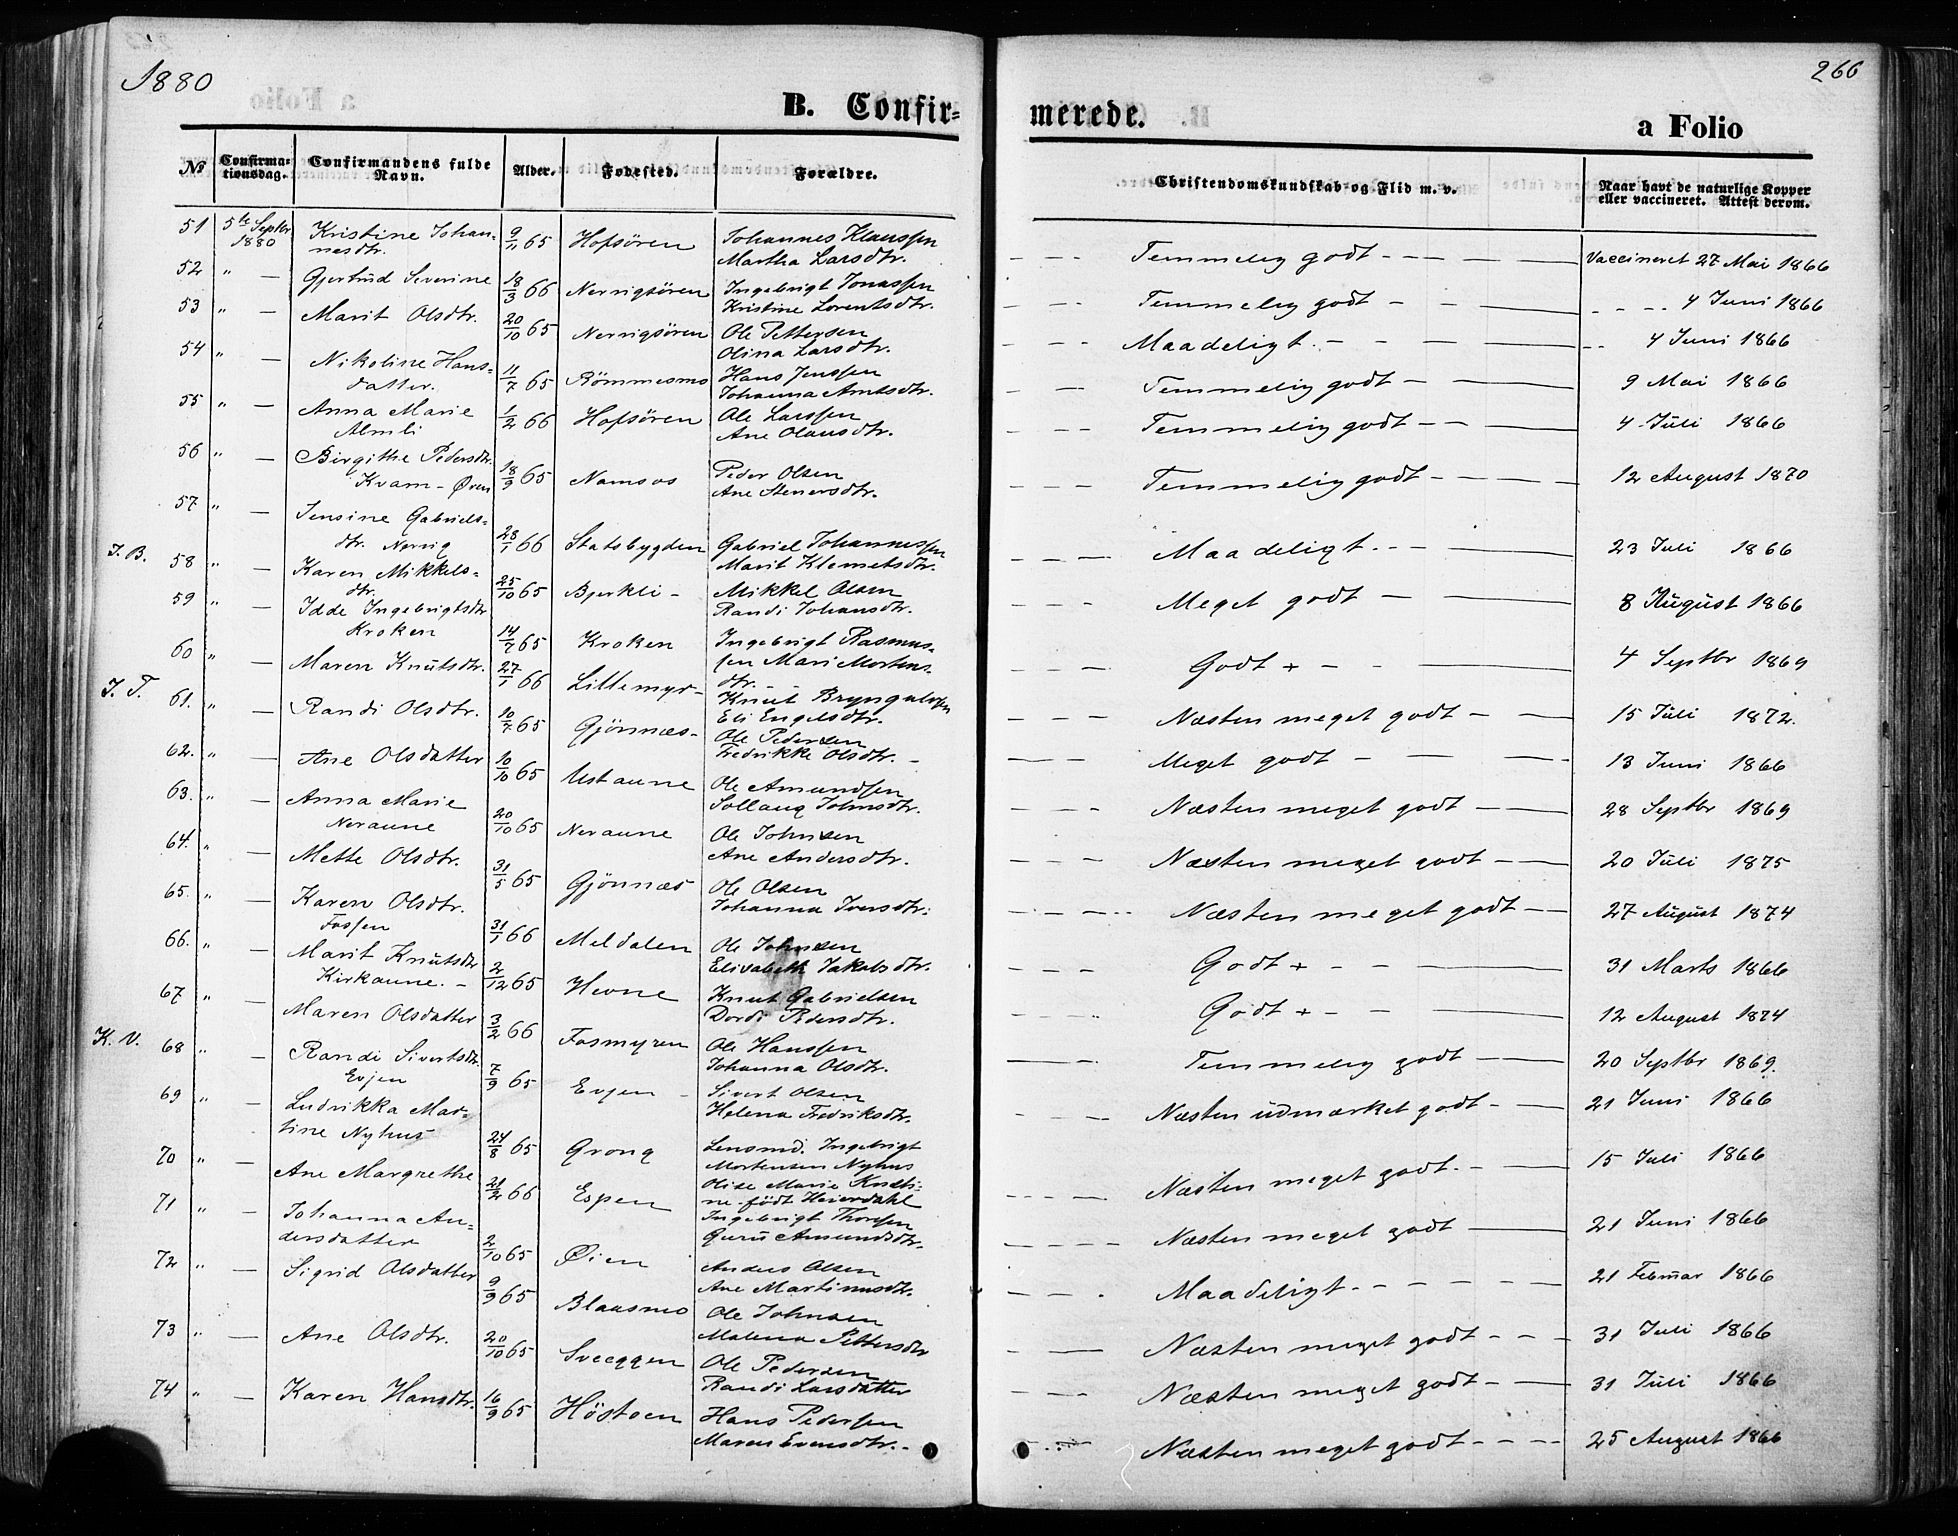 1880
266
B. Confir=
merede.
a Folio
No
Confirma-
tionsdag.
Confirmandens fulde
Navn.
Alder.
Fødested.
Forældre.
Christendomskundskab og Flid m. v.
Naar havt de naturlige Kopper
eller vaccineret. Attest derom.
51 5te Septbr 1880 Kristine Johan-
nesdtr. 9/11 65 Hofsören Johannes Klaussen
Martha Larsdtr. Temmelig godt Vaccineret 27 Mai 1866
52 " — Gjertrud Severine 18/3 66 Nervigsören Ingebrigt Jonassen
Kristine Lorentsdtr. Temmelig godt 4 Juni 1866
53 " — Marit Olsdtr. 20/10 65 Nervigsören Ole Pettersen
Olina Larsdtr. Maadeligt. 4 Juni 1866
54 " — Nikoline Hans-
datter. 11/7 65 Römmesmo Hans Jenssen
Johanna Arntsdtr. Temmelig godt 9 Mai 1866
55 " — Anna Marie
Almli 1/2 66 Hofsören Ole Larssen
Ane Olausdtr. Temmelig godt 4 Juli 1866
56 " — Birgithe Pedersdtr.
Kvam-Øren 18/9 65 Namsos Peder Olsen
Ane Stenersdtr. Temmelig godt 12 August 1870
57 " — Jensine Gabriels-
dtr. Nervig 23/1 66 Statsbygden Gabriel Johannessen
Marit Klemetsdtr. Maadeligt. 23 Juli 1866
J. B. 58 " — Karen Mikkels-
dtr. 25/10 65 Bjerkli Mikkel Olsen
Randi Johansdtr. Meget godt 8 August 1866
59 " — Idde Ingebrigtsdtr
Kroken 14/7 65 Kroken Ingebrigt Rasmus-
sen Mari Mortens-
dtr. Godt + 4 Septbr 1869
60 " — Maren Knutsdtr. 27/1 66 Lillemyr Knut Bryngelsen
Eli Engelsdtr. Næsten meget godt 15 Juli 1872.
J. T. 61. " — Randi Olsdtr. 10/7 65 Gjönnæs Ole Pedersen
Fredrikke Olsdtr. Meget godt 13 Juni 1866
62. " — Ane Olsdatter 10/10 65 Ustaune Ole Amundsen
Sollaug Johnsdtr. Næsten meget godt 28 Septbr 1869
63. " — Anna Marie
Neraune 20/10 65 Neraune Ole Johnsen
Ane Andersdtr. Næsten meget godt 20 Juli 1875
64. " — Mette Olsdtr. 31/5 65 Gjönnæs Ole Olsen
Johanna Iversdtr. Næsten meget godt 27 August 1874
65. " — Karen Olsdtr.
Fossen 31/1 66 Meldalen Ole Johnsen
Elisabeth Jakobsdtr. Godt + 31 Marts 1866
66. " — Marit Knutsdtr
Kirkaune. 2/12 65 Hevne Knut Gabrielsen
Dordi Pedersdtr. Godt + 12 August 1874
67 " — Maren Olsdatter 3/2 66 Fosmyren Ole Hanssen
Johanna Olsdtr. Temmelig godt 20 Septbr 1869.
K. V. 68 " — Randi Sivertsdtr.
Evjen 7/9 65 Evjen Sivert Olsen
Helena Fredriksdtr. Næsten udmærket godt 21 Juni 1866
69 " — Ludvikka Mar-
tine Nyhus 24/8 65 Grong Lensmd. Ingebrigt
Mortensen Nyhus
Olise Marie Kristi-
ne født Heierdahl Næsten meget godt. 15 Juli 1866
70 " — Ane Margrethe 21/2 66 Espen Ingebrigt Thoresen
Guru Amundsdtr. Næsten meget godt 21 Juni 1866
71 " — Johanna An-
dersdatter 2/10 65 Øien Anders Olsen
Ane Martinusdtr. Maadeligt. 21 Februar 1866
72 " — Sigrid Olsdatter 9/9 65 Blaasmo Ole Johnsen
Malena Pettersdtr Næsten meget godt 31 Juli 1866
73 " — Ane Olsdtr. 20/10 65 Sveeggen Ole Pedersen
Randi Larsdatter Næsten meget godt 31 Juli 1866
74 " — Karen Hansdtr. 16/9 65 Höstoen Hans Pedersen
Maren Evensdtr. Næsten meget godt 25 August 1866